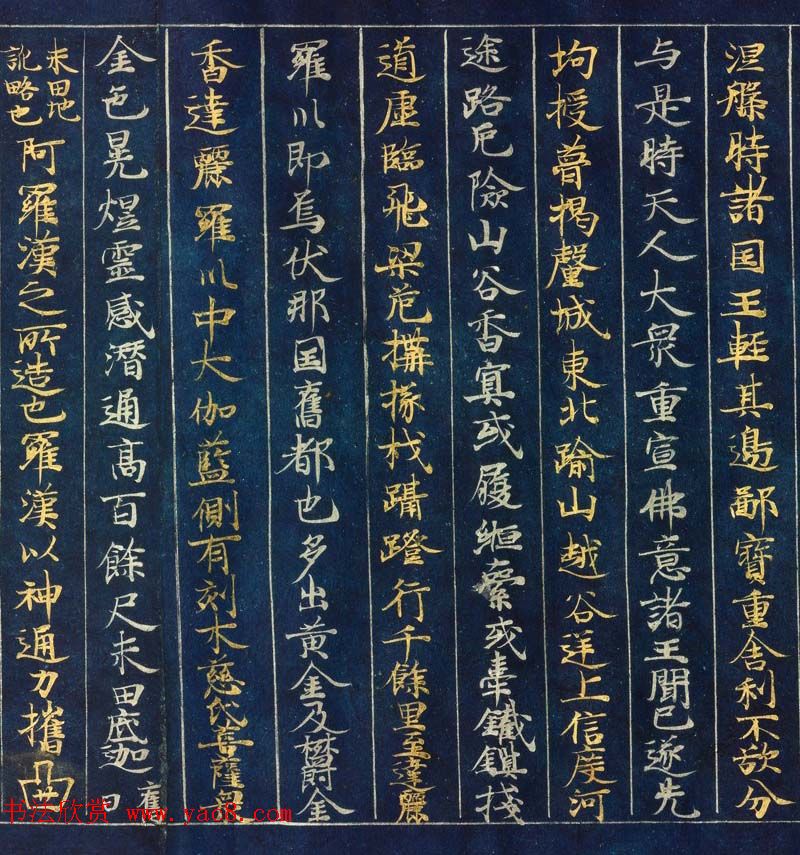 涅槃時諸国王輕其邊鄙寶重舍利不欲分
与是時天人大衆重宣佛意諸王聞已遂先
拘授瞢揭釐城東北踰山越谷逆上信度河
途路危險山谷杳冥或履緪索或牽鐵鎖棧
道虛臨飛梁危構椽杙躡蹬行千餘里至達麗
羅川即烏伏那国舊都也多出黃金及欝金
香達麗羅川中大伽藍側有刻木慈氏菩薩
金色晃煜靈感潛通高百餘尺末田底迦舊曰
末田地
訛略也
阿羅漢之所造也羅漢以神通力攜
书法欣赏 www.yac8.com